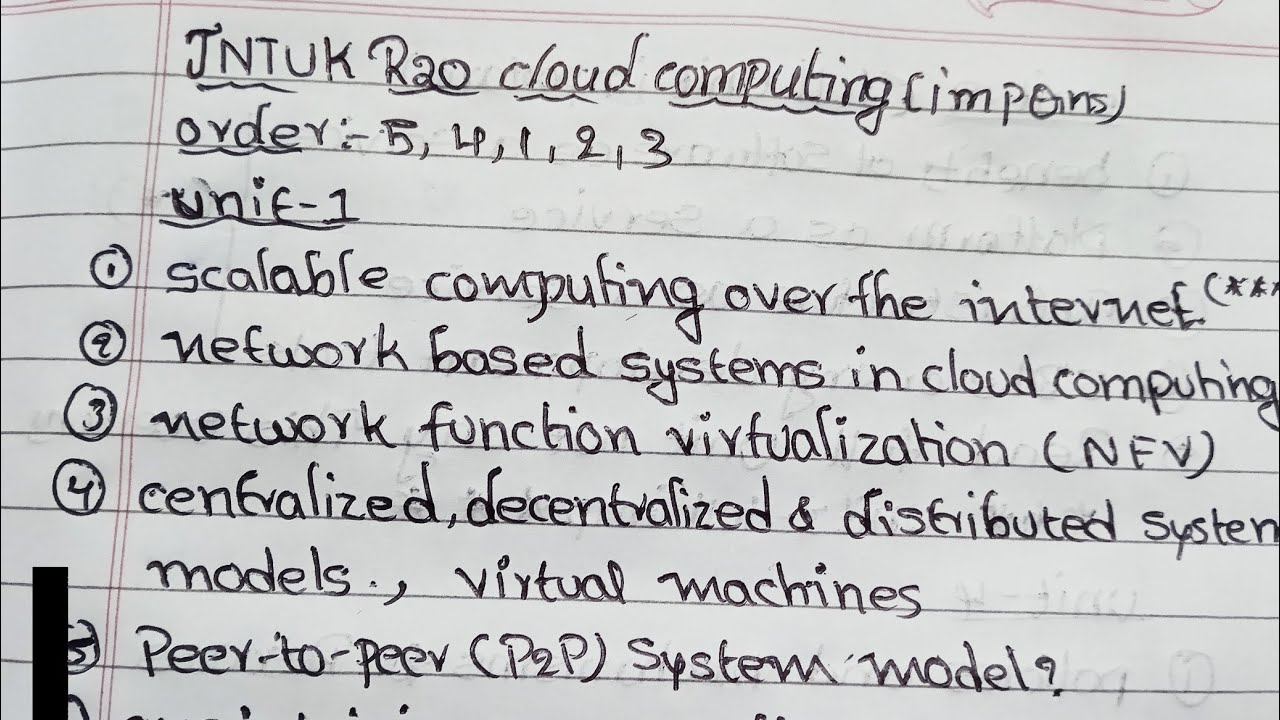 JNTUK R20 cloud computing (imp Qns)
order:- 5, 4, 1, 2, 3
unit-1
① scalable computing over the internet. (***
② network based systems in cloud computing
③ network function virtualization (NFV)
④ centralized, decentralized & distributed system
models., virtual machines
5) Peer-to-peer (P2P) System model?